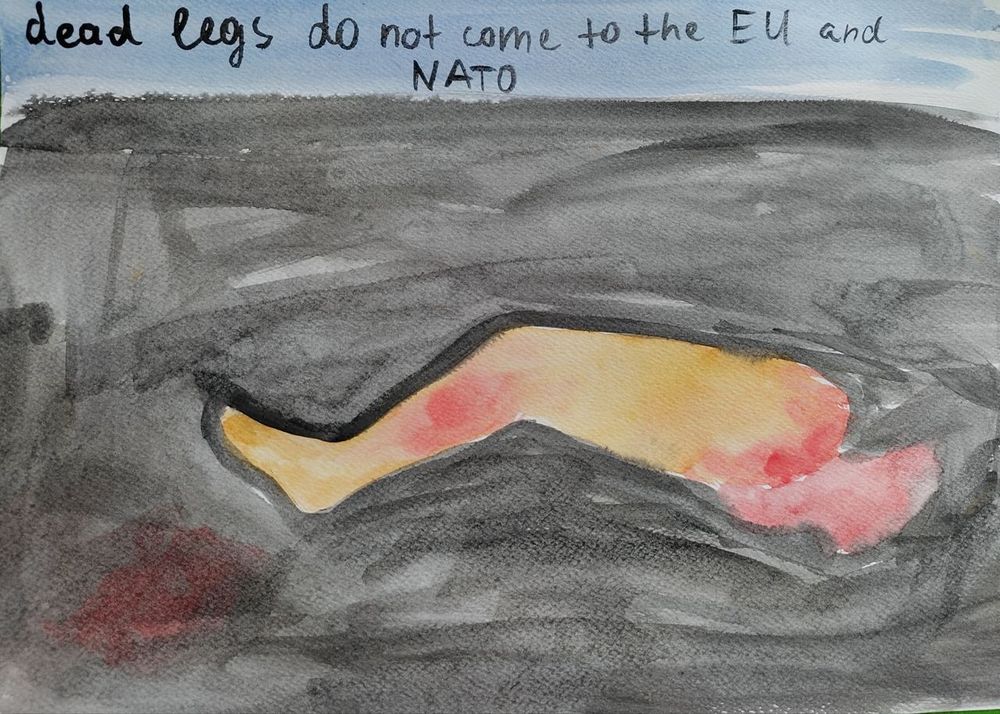 dead legs do not come to the EU and
NATO